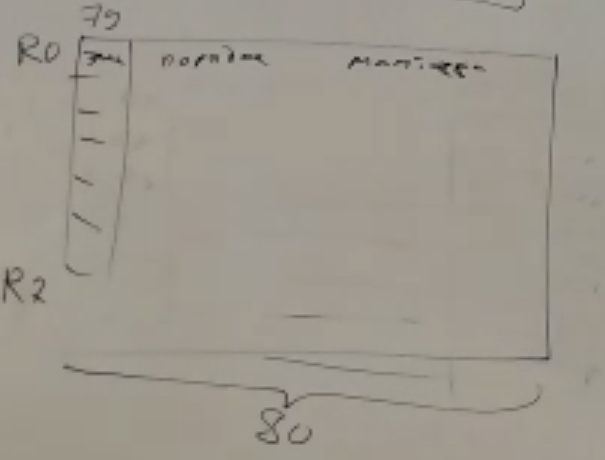 79
R0 знак порядок мантисса
R2
80